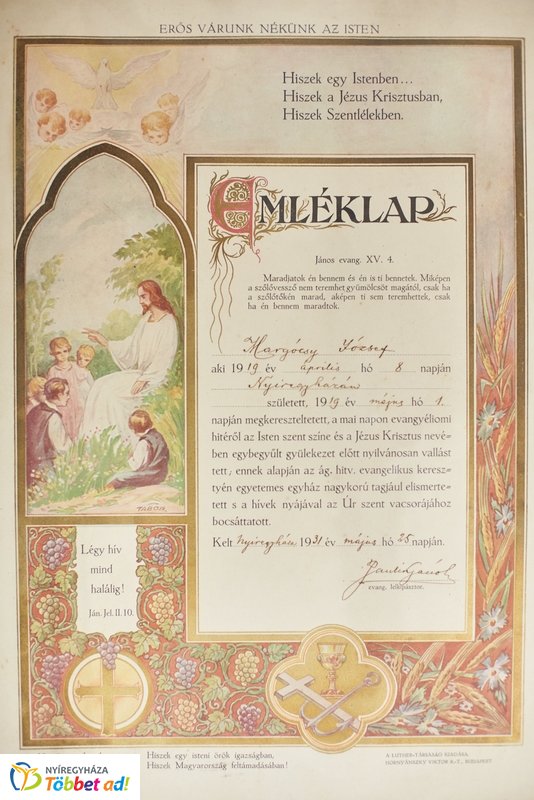 ERŐS VÁRUNK NÉKÜNK AZ ISTEN
Hiszek egy Istenben...
Hiszek a Jézus Krisztusban,
Hiszek Szentlélekben.
EMLÉKLAP
János evang. XV. 4.
Maradjatok én bennem és én is ti bennetek. Miképen
a szőlővessző nem teremhet gyümölcsöt magától, csak ha
a szőlőtőkén marad, aképen ti sem teremhettek, csak
ha én bennem maradtok.
Margócsy József
aki 1919 év április hó 8 napján
Nyiregyházán
született, 1919 év május hó 1.
napján megkereszteltetett, a mai napon evangyéliomi
hitéről az Isten szent színe és a Jézus Krisztus nevé-
ben egybegyűlt gyülekezet előtt nyilvánosan vallást
tett; ennek alapján az ág. hitv. evangelikus keresz-
tyén egyetemes egyház nagykorú tagjául elismerte-
tett s a hívek nyájával az Úr szent vacsorájához
bocsáttatott.
Kelt Nyiregyháza 1931 év május hó 25 napján.
evang. lelkipásztor.
TÁBOR.
Légy hív
mind
halálig!
Ján. Jel. II. 10.
Hiszek egy isteni örök igazságban,
Hiszek Magyarország feltámadásában!
A LUTHER-TÁRSASÁG KIADÁSA.
HORNYÁNSZKY VIKTOR R.-T., BUDAPEST
NYÍREGYHÁZA
Többet ad!